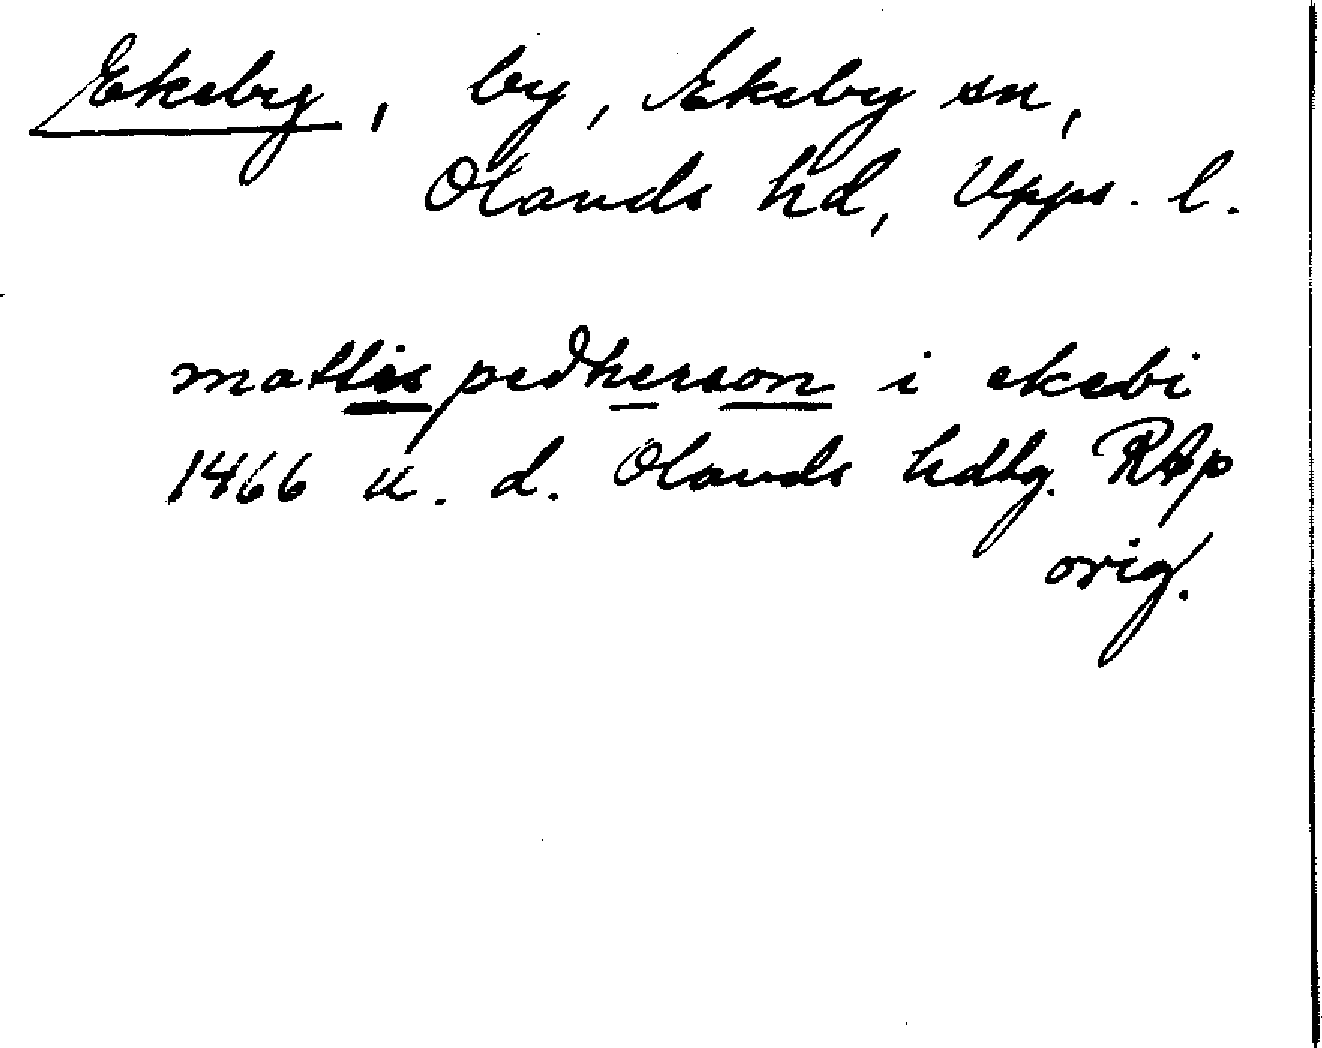 Ekeby, by, Ekeby sn,
Olands hd, Upps. l.
mattis pedherson i ekebi
1466 u. d. Olands hdhg. RAp
orig.